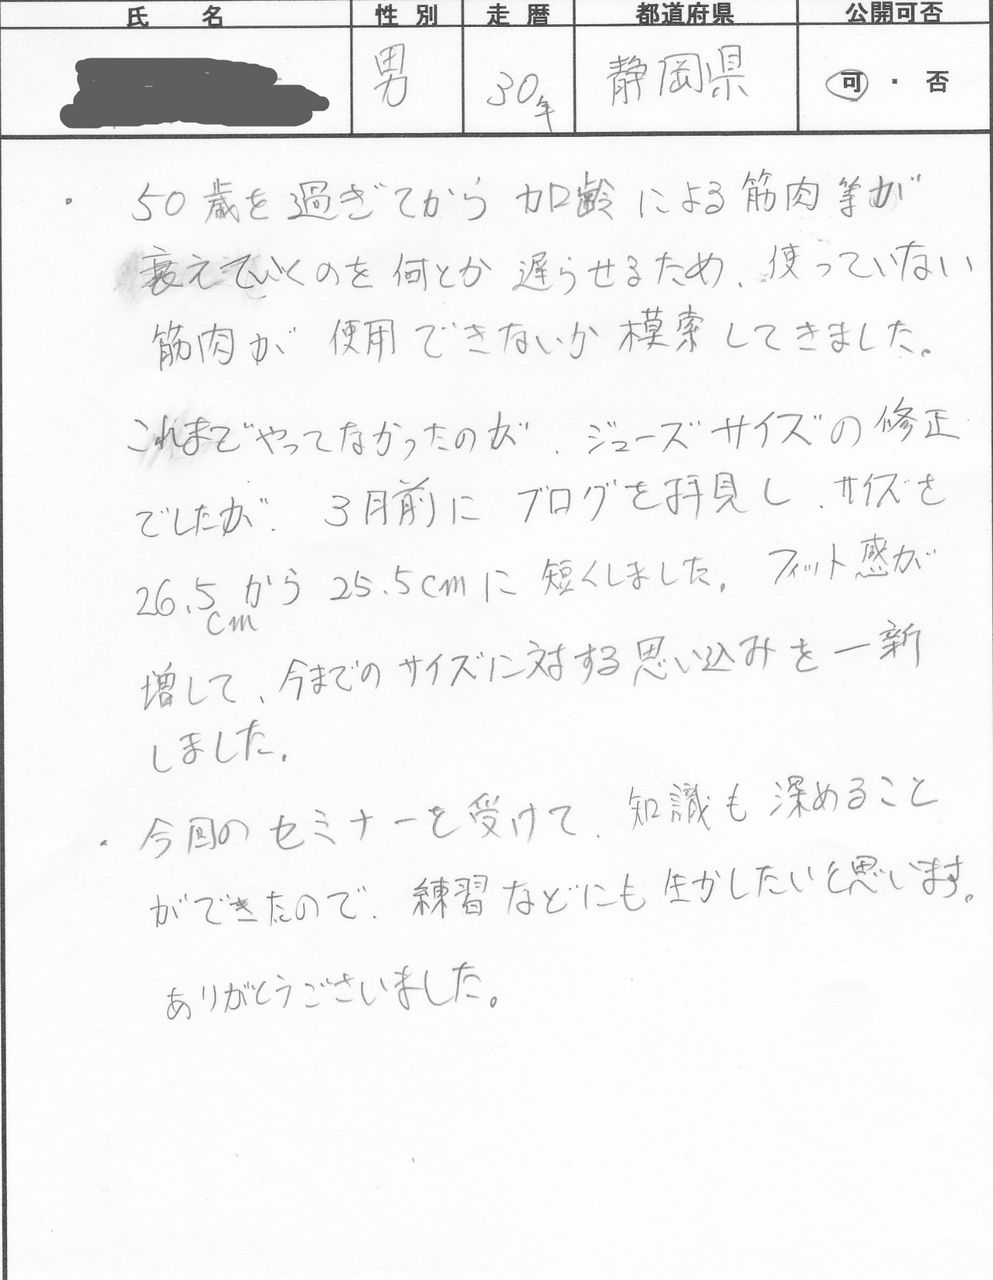 氏名 性別 走暦 都道府県 公開可否
男 30年 静岡県 可・否
・ 50歳を過ぎてから加齢による筋肉等が
衰えていくのを何とか遅らせるため、使っていない
筋肉が使用できないか模索してきました。
これまでやってなかったのが、ジューズサイズの修正
でしたが、3月前にブログを拝見し、サイズを
26.5cmから25.5cmに短くしました。フィット感が
増して、今までのサイズに対する思い込みを一新
しました。
・ 今回のセミナーを受けて、知識も深めること
ができたので、練習などにも生かしたいと思います。
ありがとうございました。